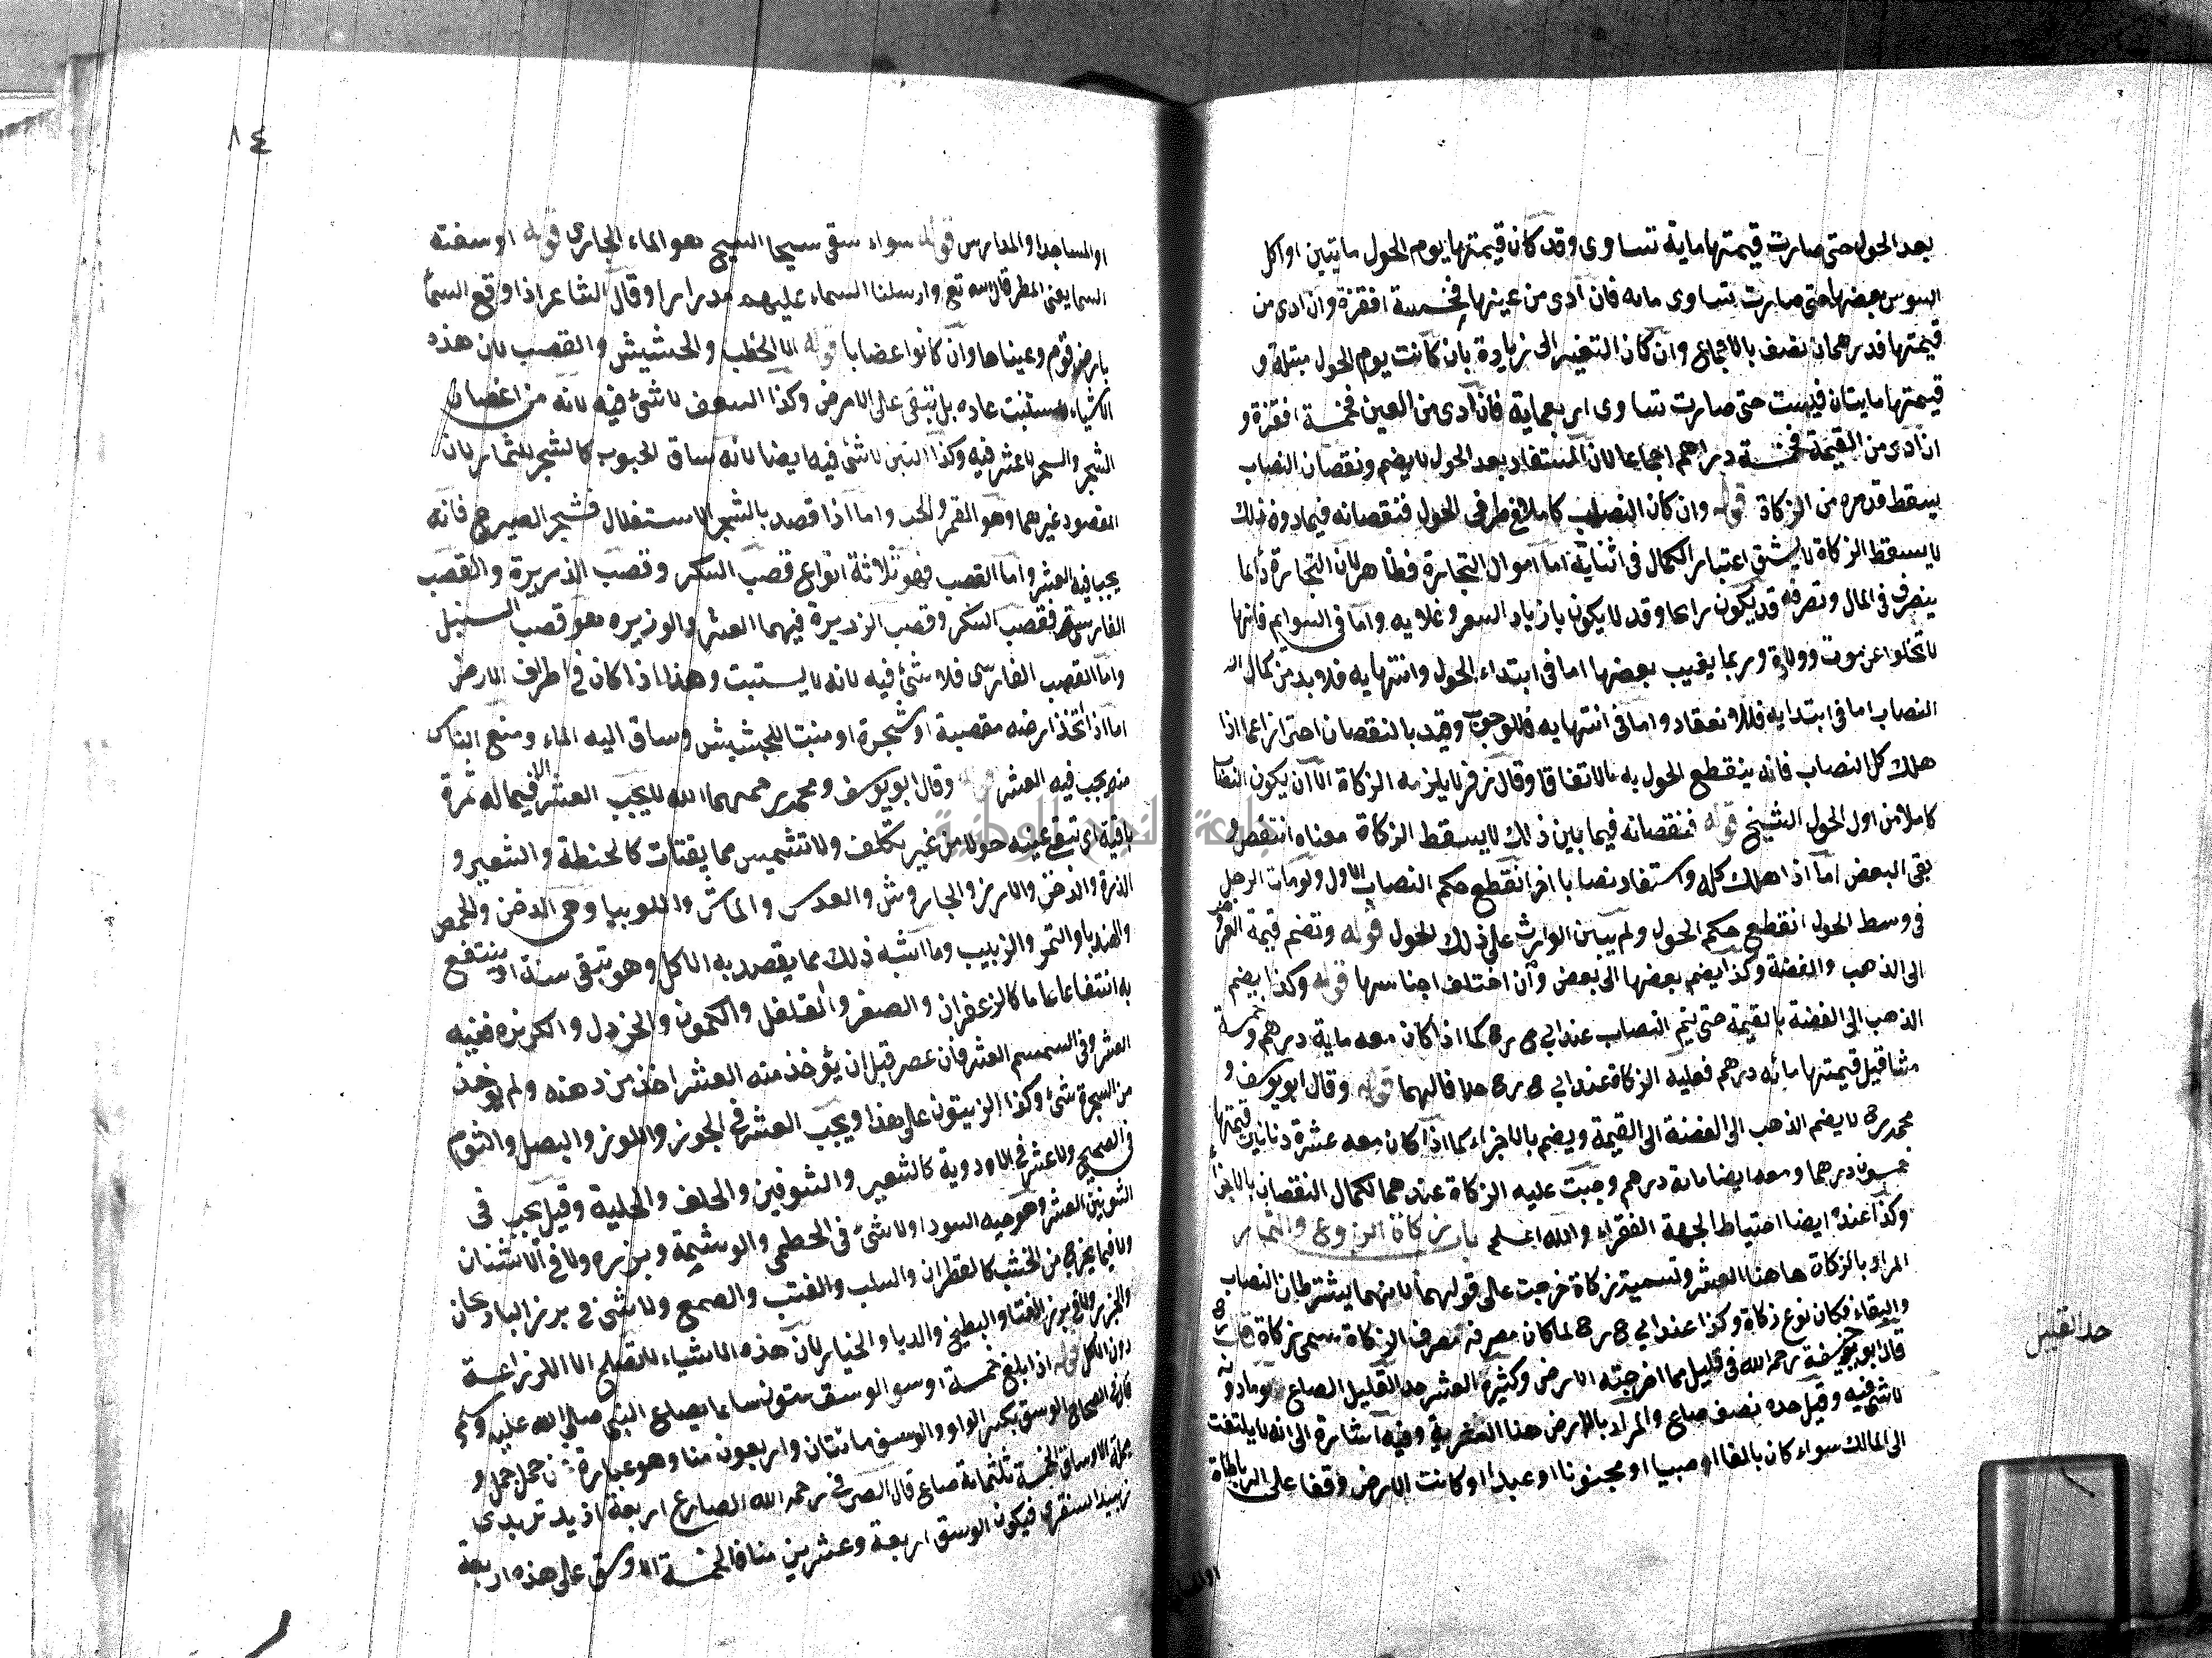 بعد الحول حتى صارت قيمتها ماية تساوى وقد كان قيمتها يوم الحول مايتين او اكل
السوس بعضها حتى صارت تساوى مايه فان ادى من عينها فخمسة اقفزة وان ادى من
قيمتها فدرهمان نصف بالاجماع وان كان التغير الى زيادة بان كانت يوم الحول مبتلة و
قيمتها مايتان فيبست حتى صارت تساوى اربعماية فان ادى من العين فخمسة اقفزة و
ان ادى من القيمة فخمسة دراهم اجماعا لان المستفاد بعد الحول لا يضم ونقصان النصاب
يسقط قدره من الزكاة قوله وان كان النصاب كاملا فى طرفى الحول فنقصانه فيما دون ذلك
لا يسقط الزكاة لا يشق اعتبار الكمال فى اثنايه اما اموال التجارة فظاهر لان التجارة دائما
يتصرف فى المال وتصرفه قد يكون رابحا وقد لا يكون بازياد السعر وغلايه واما فى السوايم فانها
لا تخلوا عن موت وولادة وربما يغيب بعضها اما فى ابتداء الحول وانتهايه فلا بد من كمال
النصاب اما فى ابتدايه فللانعقاد واما فى انتهايه فللوجوب وقيد بالنقصان احترازا عما اذا
هلك كل النصاب فانه ينقطع الحول به بالاتفاق وقال زفر لا يلزمه الزكاة الا ان يكون النصاب
كاملا من اول الحول الشيخ قوله فنقصانه فيما بين ذلك لا يسقط الزكاة معناه انتقص و
بقى البعض اما اذا هلك كله واستفاد نصابا اخر انقطع حكم النصاب الاول ولو مات الرجل
فى وسط الحول انقطع حكم الحول ولم يبين الوارث على ذلك الحول قوله وتضم قيمة العروض
الى الذهب والفضة وكذا يضم بعضها الى بعض وان اختلف اجناسها قوله وكذا يضم
الذهب الى الفضة بالقيمة حتى يتم النصاب عند ابي ح رح كما اذا كان معه ماية درهم وخمسة
مثاقيل قيمتها مائه درهم فعليه الزكاة عند ابي ح رح خلافا لهما قوله وقال ابو يوسف و
محمد رح لا يضم الذهب الى الفضة الى القيمة ويضم بالاجزاء كما اذا كان معه عشرة دنانير قيمتها
خمسون درهما ومعه ايضا ماية درهم وجبت عليه الزكاة عندهما لكمال النقصان بالاجزا
وكذا عنده ايضا احتياطا لجهة الفقراء والله اعلم باب زكاة الزروع والثمار
المراد بالزكاة هاهنا العشر وتسميته زكاة خرجت على قولهما لانهما يشترطان النصاب
والبقاء فكان نوع زكاة وكذا عند ابي ح رح لما كان مصرفه مصرف الزكاة سمى زكاة قال رح
قال ابو حنيفة رحمه الله فى قليل ما اخرجته الارض وكثيره العشر حد القليل الصاع وما دونه
لا شى فيه وقيل حده نصف صاع والمراد بالارض هنا العشرية وفيه اشارة الى انه لا يلتفت
الى المالك سواء كان بالغا او صبيا او مجنونا او عبدا او كانت الارض وقفا على الرباطاة
حد القليل
٨٤
او المساجد او المدارس قوله سواء سقى سيحا السيح هو الماء الجارى قوله او سقته
السما يعنى المطر قال الله تع وارسلنا السماء عليهم مدرارا وقال الشاعر اذا وقع السماء
بارض قوم رعيناها وان كانوا غضابا قوله الا الحطب والحشيش والقصب لان هذه
الاشياء لا تستنبت عاده بل تنفى على الارض وكذا السعف لا شئ فيه لانه من اغصان
الشجر والشجر لا عشر فيه وكذا التبن لا شئ فيه ايضا لانه ساق الحبوب كالشجر للثمار لان
المقصود غيرهما وهو الثمر والحب واما اذا قصد بالشجر الاستغلال فانه
يجب فيه العشر واما القصب فهو ثلاثة انواع قصب السكر وقصب الذريرة والقصب
الفارسي فقصب السكر وقصب الزريرة فيهما العشر والوزيره هو قصب السنبل
واما القصب الفارسى فلا شئ فيه لانه لا يستنبت وهذا اذا كان فى اطراف الارض
اما اذا اتخذ ارضه مقصبة او شجرة او منبتا للحشيش وساق اليه الماء ومنع الناس
منه يجب فيه العشر قوله وقال ابو يوسف ومحمد رحمهما الله لا يجب العشر الا فيما له ثمرة
باقية اى تبقى عينه حولا من غير تكلف ولا تشميس مما يقتات كالحنطة والشعير و
الذرة والدخن والارز والجاروش والعدس والماش واللوبيا وهى الدخن والحمص
والهندبا والتمر والزبيب وما اشبه ذلك مما يقصد به الاكل وهو تبقى سنة او ينتفع
به انتفاعا عاما كالزعفران والصفر والفلفل والكمون والخردل والكزبره ففيه
العشر وفى السمسم العشر فان عصر قبل ان يؤخذ منه العشر اخذ من دهنه ولم يؤخذ
من الشجرة شئ وكذا الزيتون على هذا ويجب العشر فى الجوز واللوز والبصل والثوم
فى الصحيح ولا عشر فى الادوية كالشعير والشونين والحلف والحلبة وقيل يجب فى
الشونين العشر وهو حبه السودا ولا شئ فى الخطمى والوشيمة وبزره ولا فى الاشنان
ولا فيما يخرج من الخشب كالقطران والسلب والقنب والصمغ ولا شئ فى بزر الباد نجان
والجزر ولا فى بزر القثا والبطيخ والدبا والخيار لان هذه الاشياء لا تصلح الا للزراعة
دون الاكل قوله اذا بلغ خمسة اوسق والوسق ستون صاعا بصاع النبى صلى الله عليه وسلم
قال فى الصحاح الوسق بكسر الواو والوسق مائتان واربعون منا وهو عبارة عن حمل جمل و
جملة الاوساق الخمسة ثلثماية صاع قال الصيرفى رحمه الله الصاع اربعة
فيكون الوسق اربعة وعشرين منا فالخمسة الاوسق على هذه اربعة
او المساجد
جامعة النجاح الوطنية